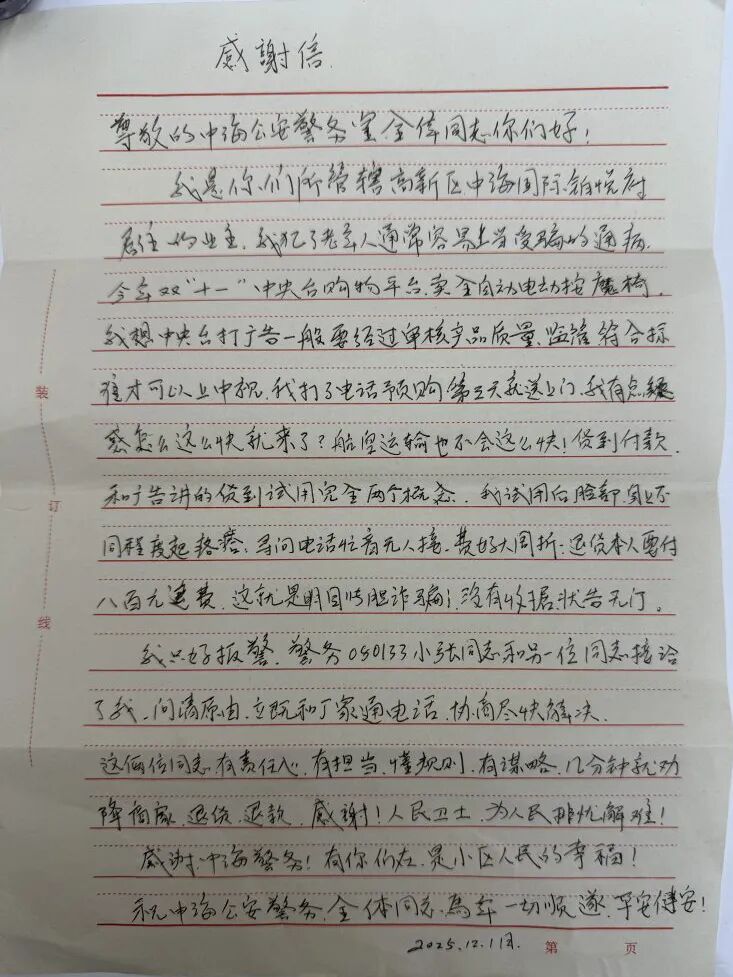 感謝信.
尊敬的中海公安警务室全体同志你们好!
我是你们所管辖高新区中海国际铂悦府
居住的业主,我犯了老年人通常容易上当受骗的通病.
今年双"十一"中央台购物平台.卖全自动电动按魔椅.
我想中央台打广告一般要经过审核产品质量、监管符合标
准才可以上中视.我打了电话予购第三天就送上门.我有点疑
惑怎么这么快就来了?航空运输也不会这么快!货到付款.
和广告讲的货到试用完全两个概念.我试用后脸部、身上不
同程度起疙瘩;寻问电话忙音无人接.费好大周折.退货本人要付
八百元运费.这就是明目张胆诈骗!没有收据.状告无门。
我只好报警.警务050133小张同志和另一位同志接洽
了我.问清原由.立既和厂家通电话.协商尽快解决.
这俩位同志.有责任心.有担当.懂规则.有谋略.几分钟就劝
降商家.退货.退款.感谢!人民卫士.为人民排忧解难!
感谢.中海警务!有你们在.是小区人民的幸福!
祝中海公安警务.全体同志.馬年一切顺遂.平安健安!
2025.12.11日.
第 页
装
订
线